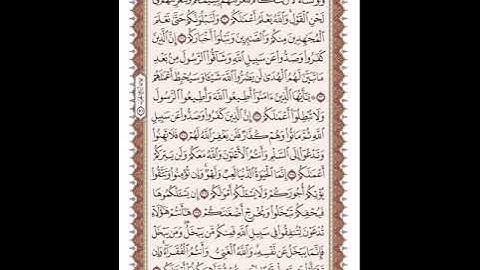 لَحْنِ ٱلْقَوْلِ وَٱللَّهُ يَعْلَمُ أَعْمَٰلَكُمْ وَلَنَبْلُوَنَّكُمْ حَتَّىٰ نَعْلَمَ
ٱلْمُجَٰهِدِينَ مِنكُمْ وَٱلصَّٰبِرِينَ وَنَبْلُوَا۟ أَخْبَارَكُمْ إِنَّ ٱلَّذِينَ
كَفَرُوا۟ وَصَدُّوا۟ عَن سَبِيلِ ٱللَّهِ وَشَآقُّوا۟ ٱلرَّسُولَ مِنۢ بَعْدِ
مَا تَبَيَّنَ لَهُمُ ٱلْهُدَىٰ لَن يَضُرُّوا۟ ٱللَّهَ شَيْـًٔا وَسَيُحْبِطُ أَعْمَٰلَهُمْ
يَٰٓأَيُّهَا ٱلَّذِينَ ءَامَنُوٓا۟ أَطِيعُوا۟ ٱللَّهَ وَأَطِيعُوا۟ ٱلرَّسُولَ
وَلَا تُبْطِلُوٓا۟ أَعْمَٰلَكُمْ إِنَّ ٱلَّذِينَ كَفَرُوا۟ وَصَدُّوا۟ عَن سَبِيلِ
ٱللَّهِ ثُمَّ مَاتُوا۟ وَهُمْ كُفَّارٌ فَلَن يَغْفِرَ ٱللَّهُ لَهُمْ فَلَا تَهِنُوا۟
وَتَدْعُوٓا۟ إِلَى ٱلسَّلْمِ وَأَنتُمُ ٱلْأَعْلَوْنَ وَٱللَّهُ مَعَكُمْ وَلَن يَتِرَكُمْ
أَعْمَٰلَكُمْ إِنَّمَا ٱلْحَيَوٰةُ ٱلدُّنْيَا لَعِبٌ وَلَهْوٌ وَإِن تُؤْمِنُوا۟ وَتَتَّقُوا۟
يُؤْتِكُمْ أُجُورَكُمْ وَلَا يَسْـَٔلْكُمْ أَمْوَٰلَكُمْ إِن يَسْـَٔلْكُمُوهَا
فَيُحْفِكُمْ تَبْخَلُوا۟ وَيُخْرِجْ أَضْغَٰنَكُمْ هَٰٓأَنتُمْ هَٰٓؤُلَآءِ
تُدْعَوْنَ لِتُنفِقُوا۟ فِى سَبِيلِ ٱللَّهِ فَمِنكُم مَّن يَبْخَلُ وَمَن يَبْخَلْ
فَإِنَّمَا يَبْخَلُ عَن نَّفْسِهِۦ وَٱللَّهُ ٱلْغَنِىُّ وَأَنتُمُ ٱلْفُقَرَآءُ وَإِن